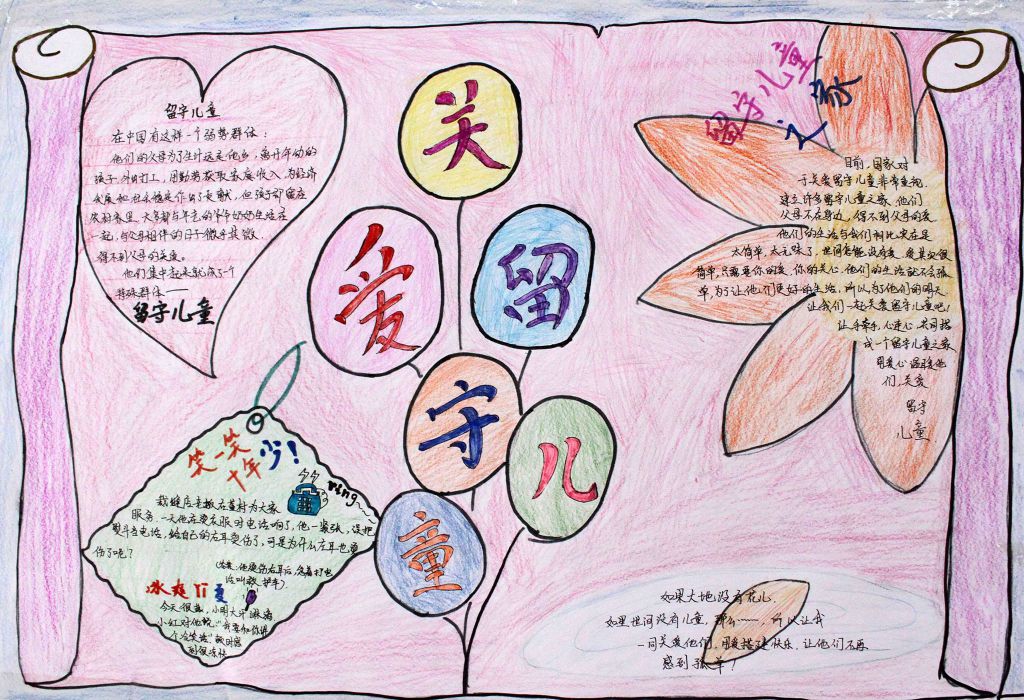 留守儿童
在中国有这样一个弱势群体：
他们的父母为了生计远走他乡，离开年幼的
孩子，外出打工，用勤劳获取家庭收入，为经济
发展和社会稳定作出了贡献，但孩子却留在
农村家里，大多都与年老的爷爷奶奶生活在
一起，与父母相伴的日子微乎其微，
得不到父母的关爱。
他们集中起来就成了一个
特殊群体——
留守儿童
关
爱
留
守
儿
童
留守儿童
之家
目前，国家对
于关爱留守儿童非常重视，
建立许多留守儿童之家，他们
父母不在身边，得不到父母的爱，
他们的生活与我们相比实在是
太简单，太无味了，世间怎能没有爱，爱其实很
简单，只需要你的爱，你的关心，他们的生活就不会孤
单，为了让他们更好的生活，所以为了他们的明天
让我们一起关爱留守儿童吧！
让手牵手，心连心，共同搭
成一个留守儿童之家
用爱心温暖他
们，关爱
留守
儿童
笑一笑
十年少！
ring~~~
裁缝店老板在苗村为大家
服务，一天他在熨衣服时电话响了，他一紧张，误把
熨斗当电话，给自己的右耳烫伤了，可是为什么左耳也烫
伤了呢？
(答案：他烫伤右耳后，急着打电
话叫救护车)
冰爽Ti夏
今天很热，小明大汗淋漓
小红对他说："我要和你讲
个冷笑话"顿时感
到很凉快
如果大地没有花儿，
如果世间没有儿童，那么……，所以让我
一同关爱他们，用爱搭建快乐，让他们不再
感到孤单！